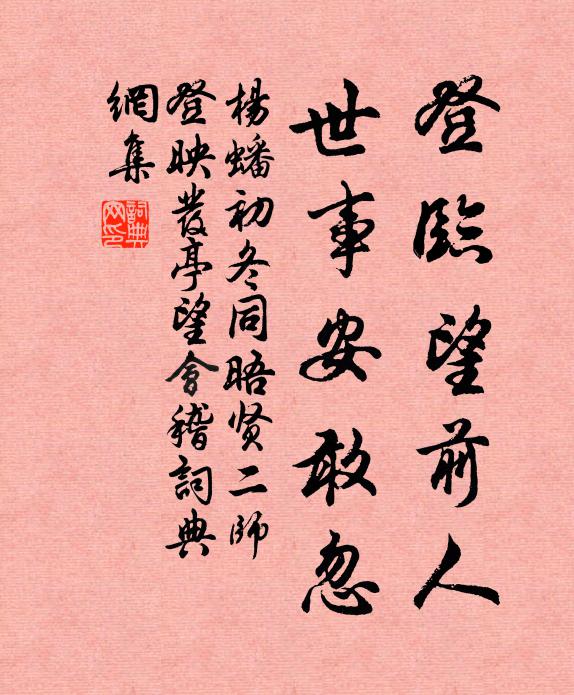 登臨望前人
世事安敢忽
楊蟠初冬同晤贤二師
登映發亭望會稽詞典
網集
詞典網印